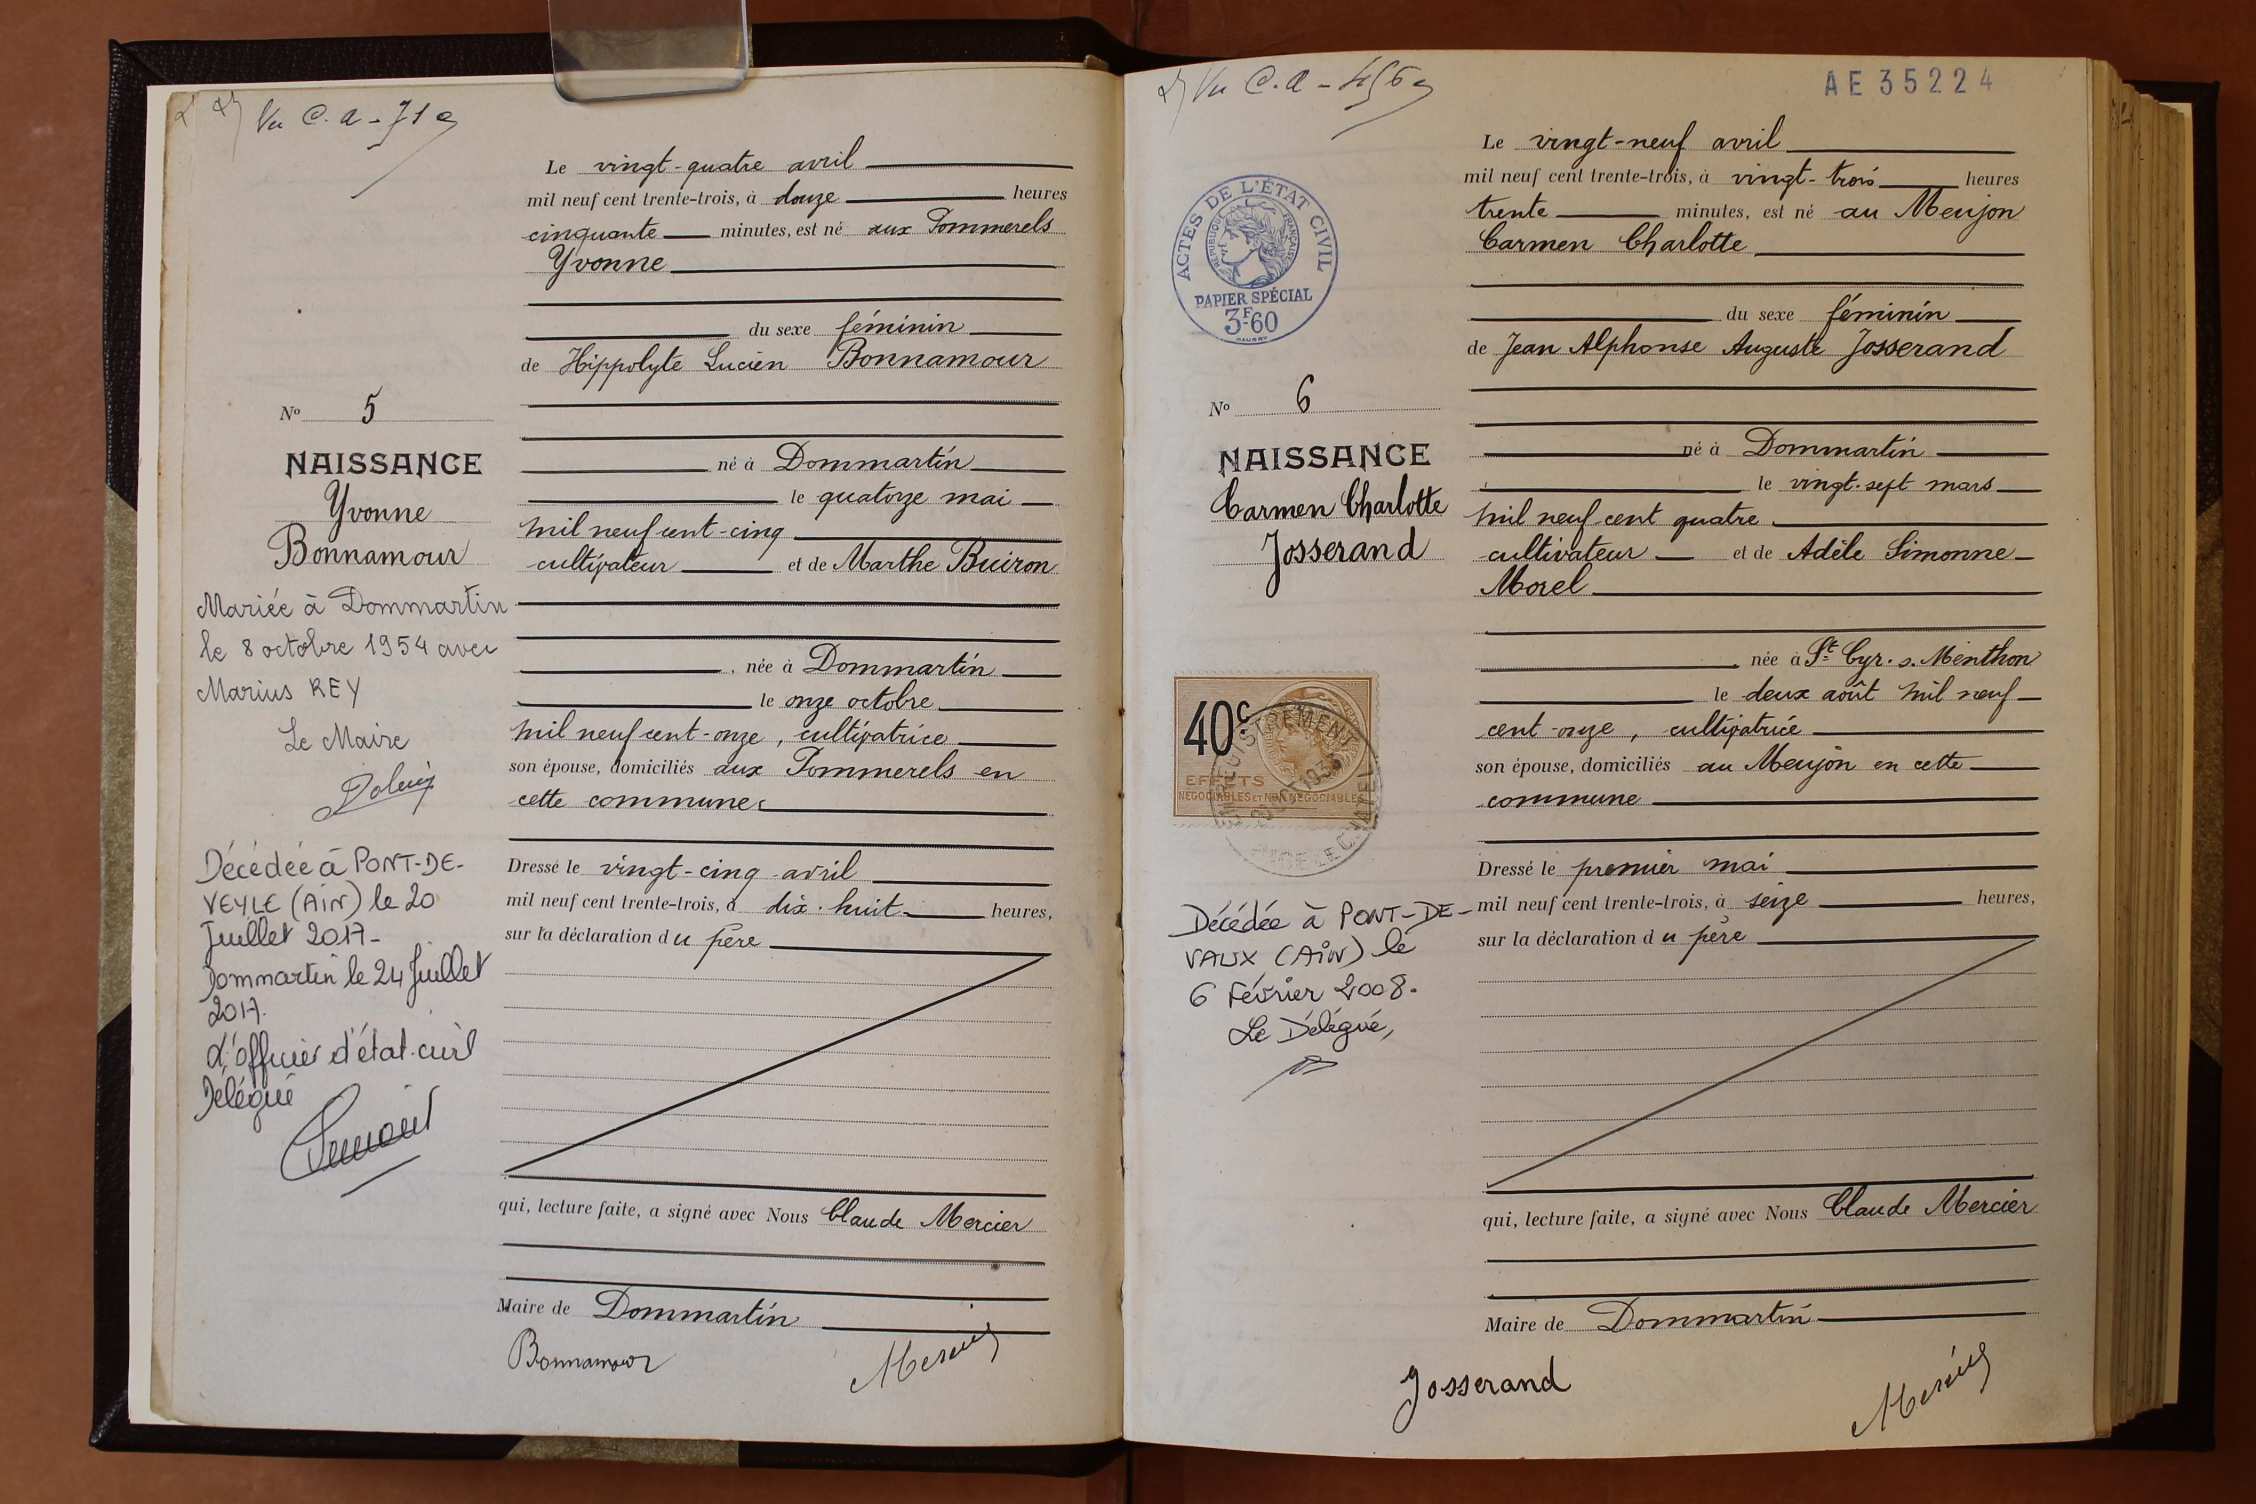 Vu C.a - 71
Le vingt-quatre avril
mil neuf cent trente-trois, à douze heures
cinquante minutes, est né aux Pommerels
Yvonne
du sexe féminin
de Hippolyte Lucien Bonnamour
No 5
NAISSANCE
Yvonne
Bonnamour
né à Dommartin
le quatorze mai
mil neuf cent-cinq
cultivateur et de Marthe Buiron
née à Dommartin
le onze octobre
mil neuf cent-onze, cultivatrice
son épouse, domiciliés aux Pommerels en
cette commune
Dressé le vingt-cinq avril
mil neuf cent trente-trois, à dix-huit heures,
sur la déclaration du père
qui, lecture faite, a signé avec Nous Claude Mercier
Maire de Dommartin
Bonnamour Mercier
Mariée à Dommartin
le 8 octobre 1954 avec
Marius REY
Le Maire
Décédée à PONT-DE-
VEYLE (AIN) le 20
Juillet 2017-
Dommartin le 24 Juillet
2017.
L'officier d'état-civil
Délégué
Vu C.a - 456
AE 35224
ACTES DE L'ÉTAT CIVIL
RÉPUBLIQUE FRANÇAISE
PAPIER SPÉCIAL
3F60
Le vingt-neuf avril
mil neuf cent trente-trois, à vingt-trois heures
trente minutes, est né au Meujon
Carmen Charlotte
du sexe féminin
de Jean Alphonse Auguste Josserand
No 6
NAISSANCE
Carmen Charlotte
Josserand
né à Dommartin
le vingt-sept mars
mil neuf cent quatre
cultivateur et de Adèle Simonne
Morel
née à St Cyr. s. Menthon
le deux août mil neuf
cent-onze, cultivatrice
son épouse, domiciliés au Meujon en cette
commune
Dressé le premier mai
mil neuf cent trente-trois, à seize heures,
sur la déclaration du père
qui, lecture faite, a signé avec Nous Claude Mercier
Maire de Dommartin
Josserand Mercier
40c
ENREGISTREMENT
EFFETS
NÉGOCIABLES ET NON NÉGOCIABLES
Décédée à PONT-DE-
VAUX (AIN) le
6 Février 2008.
Le Délégué,